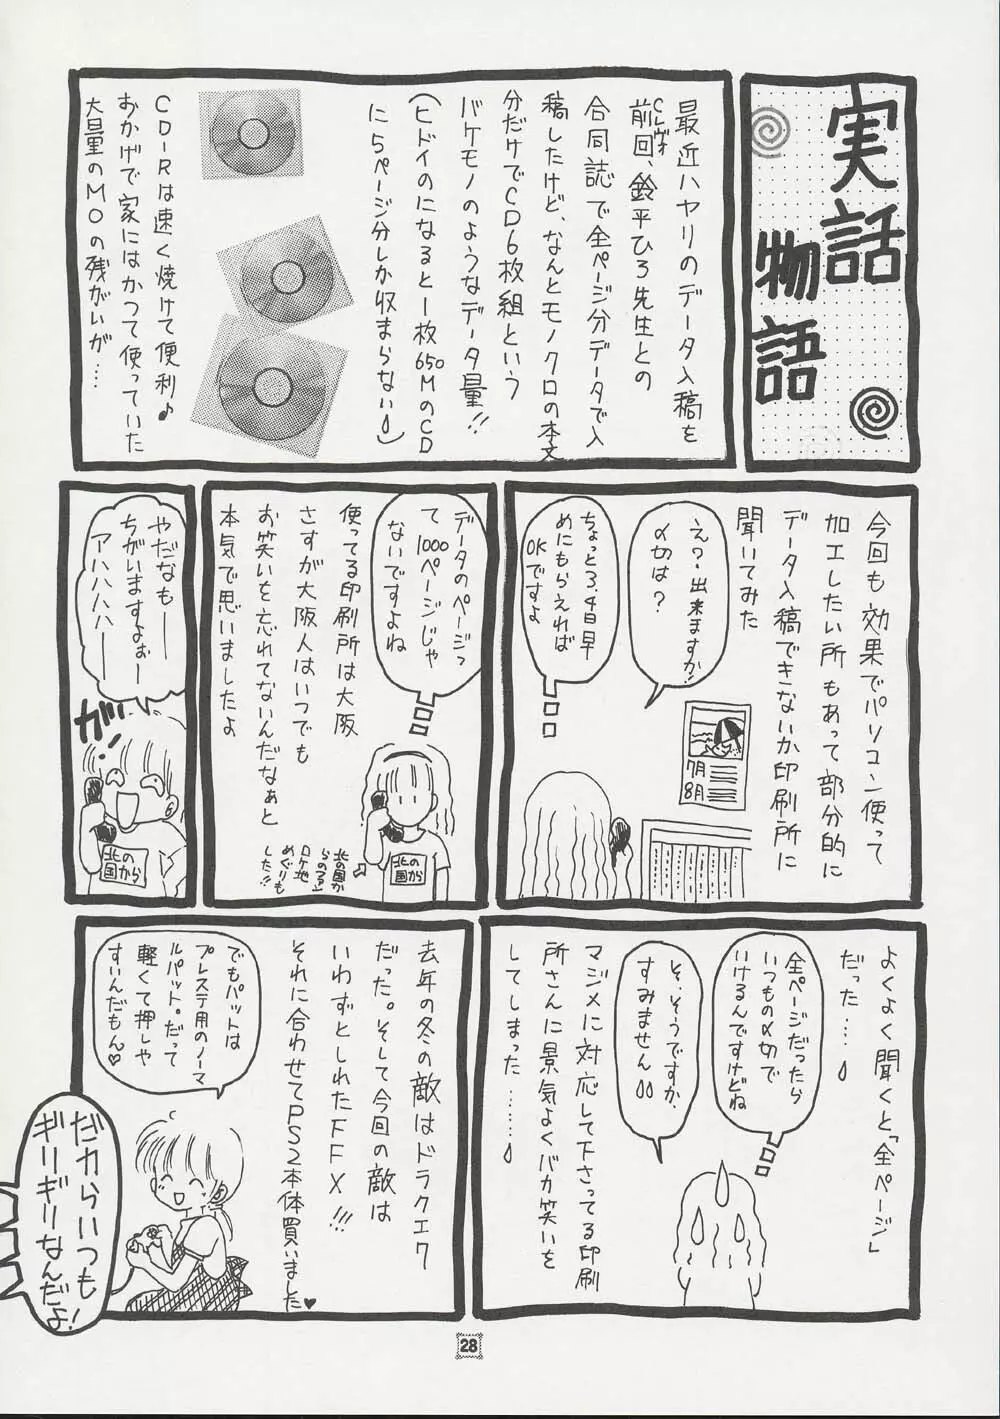 実話
物語
最近ハヤリのデータ入稿を
前回、鈴平ひろ先生との
CLレヴォ
合同誌で全ページ分データで入
稿したけど、なんとモノクロの本文
分だけでCD6枚組という
バケモノのようなデータ量!!
(ヒドイのになると一枚650MのCD
に5ページ分しか収まらない)
CD-Rは速く焼けて便利♪
おかげで家にはかつて使っていた
大量のMOの残がいが…
今回も効果でパソコン使って
加工したい所もあって部分的に
データ入稿できないか印刷所に
聞いてみた
え?出来ますか!
〆切は?
ちょっと3.4日早
めにもらえれば
OKですよ
7月
8月
データのページっ
て1000ページじゃ
ないですよね
使ってる印刷所は大阪
さすが大阪人はいつでも
お笑いを忘れてないんだなぁと
本気で思いましたよ
北の国か
らのマネ
ロケ地
めぐりも
した!!
北の
国から
やだなも——
ちがいますよぉー
アハハハハハ——
ガ!
北の
国から
よくよく聞くと「全ページ」
だった……
全ページだったら
いつもの〆切で
いけるんですけどね
そ、そうですか、
すみません
マジメに対応して下さってる印刷
所さんに景気よくバカ笑いを
してしまった………
去年の冬の敵はドラクエ7
だった。そして今回の敵は
いわずとしれたFFX!!!
それに合わせてPS2本体買いました♥
でもパットは
プレステ用のノーマ
ルパット。だって
軽くて押しや
すいんだもん♥
だからいつも
ギリギリなんだよ!
28